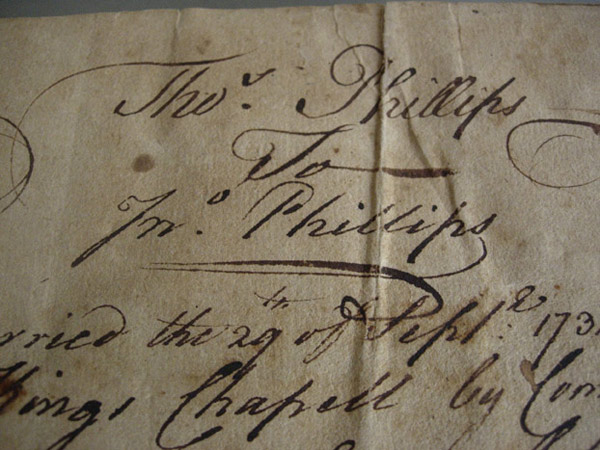 Thos. Phillips
To
Jno. Phillips
rried the 29th of Septr. 173
Kings Chapell by Com